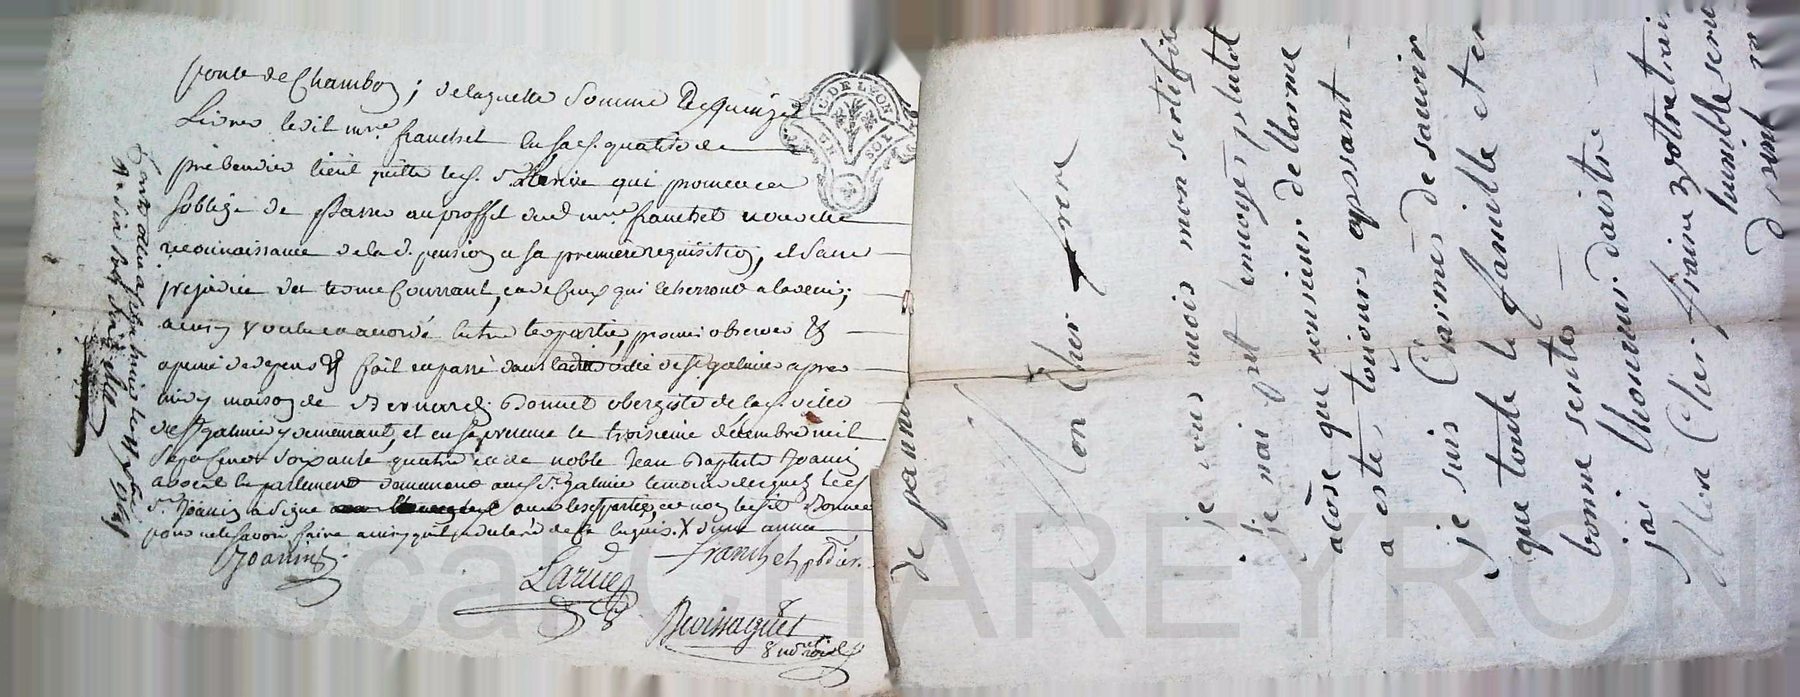 ponte de Chambon; de laquelle somme de quinze
Livres ledit mre franchet en sa d. qualité de
prebendier tient quitte led. sr Larue qui promet et
soblige de passer au proffit dud mre franchet nouvelle
reconnaissance de la d. pension a sa premiere requisition, et sans
prejudice du terme Courrant, et de Ceux qui lecherront a lavenir;
ainsy voulu et accordé entre les parties, promis observer &
a peine de depens & fait et passé dans la ville de st galmier apres
midy maison de Bernard Bonnet obergiste de lad. ville
de st galmier y demeurant, et en sa presence le troisieme décembre mil
sept Cent soixante quatre et de noble Jean Baptiste Joanin
avocat en parlement demeurant aud st galmier temoins lesquels led
sr Joanin a signé avec les parties, et non led sr Bonnet
pour ne le savoir faire ainsy quil a declaré de ce enquis. X d'une année
Joanin
Larue
franchet pbdier.
Boissaguet
MUC DE LYON
SOL
de jeanne
Mon Cher frere
je vous envois mon sertifica
je nai put envoyer plutot
acose que monsieur dellorme
a este toujours apssant
je suis Charmé de savoir
que toute la famille et en
bonne sente
jai lhonneur daistre
Mon Cher fraire vottre trai
humble serv
Pascal CHAREYRON